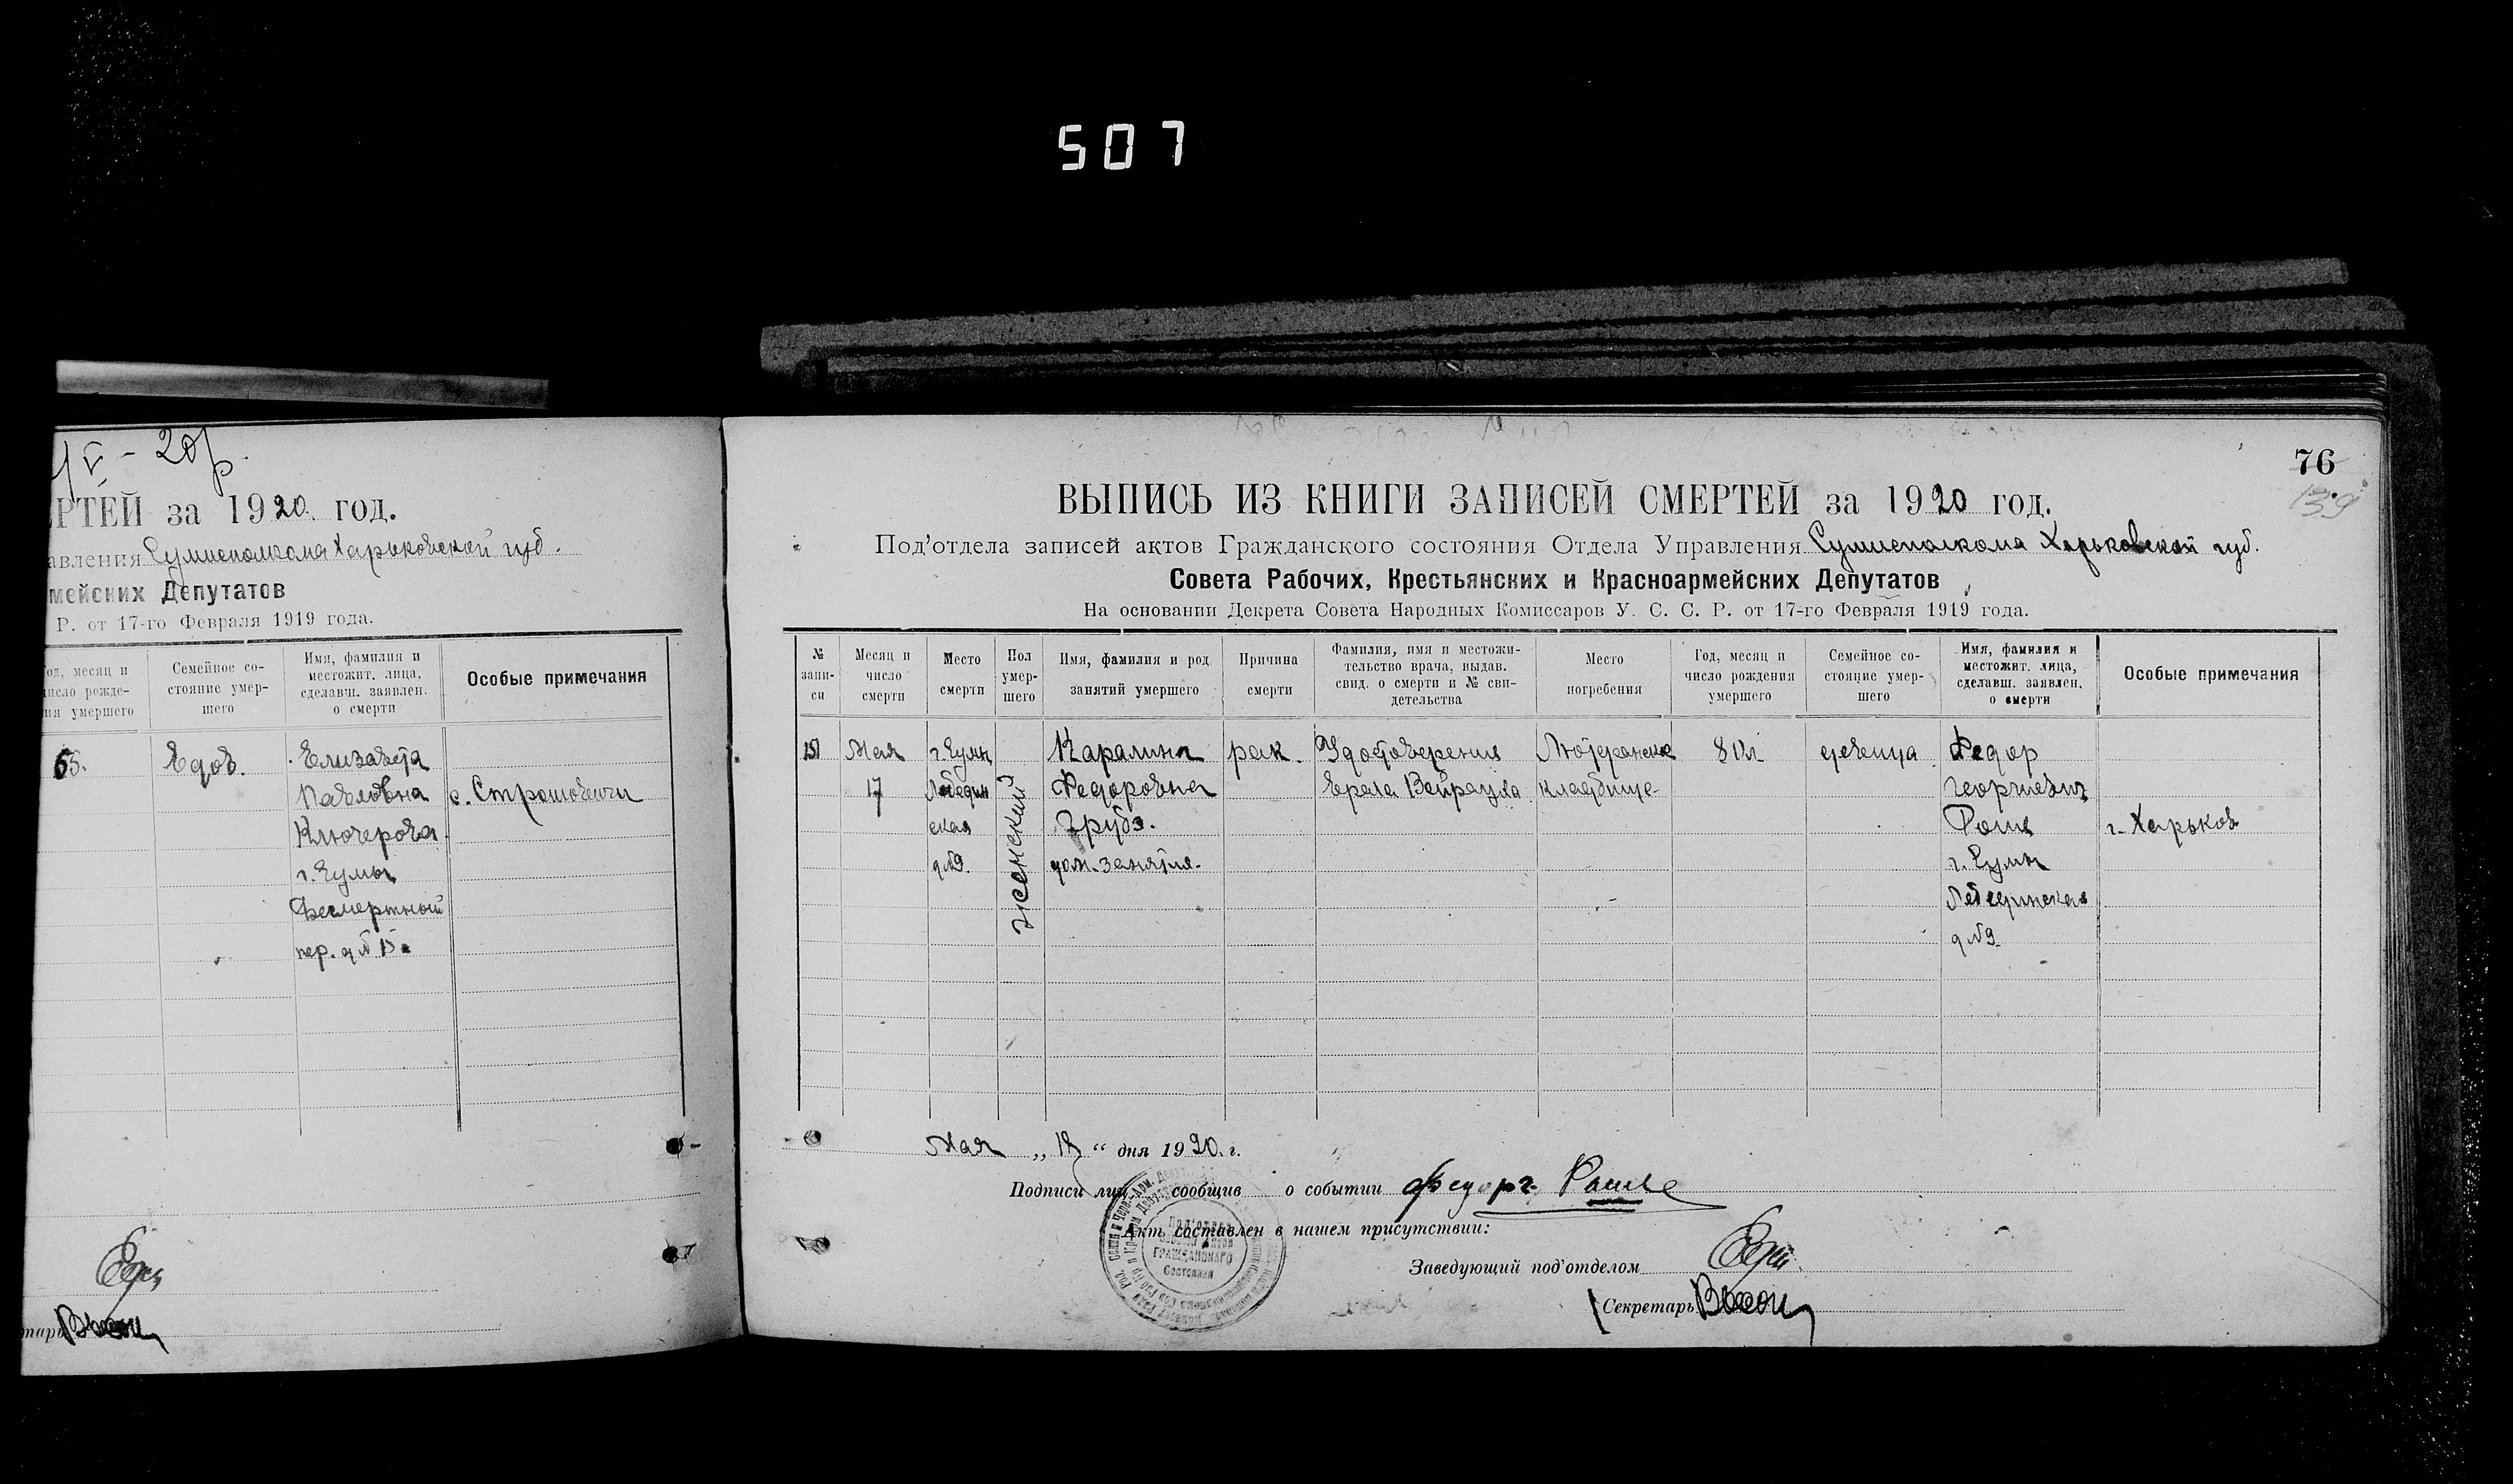 507
V - 20
РТЕЙ за 1920 год.
авления Сумисполкома Харьковской губ.
мейских Депутатов
Р. от 17-го Февраля 1919 года.
од, месяц и
число рожде-
ия умершего
Семейное со-
стояние умер-
шего
Имя, фамилия и
местожит. лица,
сделавш. заявлен.
о смерти
Особые примечания
65.
Вдов.
Елизавета
Павловна
Ключерова
г. Сумы
пер. д № 15
с.
тарь
76
139
ВЫПИСЬ ИЗ КНИГИ ЗАПИСЕЙ СМЕРТЕЙ за 1920 год.
Под'отдела записей актов Гражданского состояния Отдела Управления Сумисполкома Харьковской губ.
Совета Рабочих, Крестьянских и Красноармейских Депутатов
На основании Декрета Совета Народных Комиссаров У. С. С. Р. от 17-го Февраля 1919 года.
№
запи-
си
Месяц и
число
смерти
Место
смерти
Пол
умер-
шего
Имя, фамилия и род
занятий умершего
Причина
смерти
Фамилия, имя и местожи-
тельство врача, выдав.
свид. о смерти и № сви-
детельства
Место
погребения
Год, месяц и
число рождения
умершего
Семейное со-
стояние умер-
шего
Имя, фамилия и
местожит. лица,
сделавш. заявлен.
о смерти
Особые примечания
151
Мая
17
г. Сумы
Лебедин
ская
д № 9.
женский
Каралина
Федоровна
Грубэ.
дом. занятия.
рак.
Удостоверения
врача Вейрауха
Лютеранское
кладбище
81 л.
девица
Федор
Георгиевич
г. Сумы
Лебединская
д № 9
г. Харьков
Мая „ 18 “ дня 1920. г.
Подписи лиц сообщив о событии Федор Г.
Акт составлен в нашем присутствии:
Под'отдел
Записи Актов
ГРАЖДАНСКАГО
Состояния
Заведующий под'отделом
Секретарь